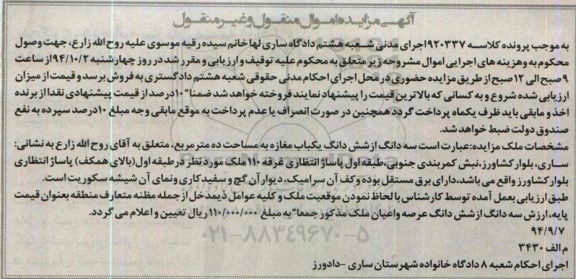 آگهی مزایده اموال منقول و غیر منقول
به موجب پرونده کلاسه ۹۲۰۳۳۷اجرای مدنی شعبه هشتم دادگاه ساری لها خانم سیده رقیه موسوی علیه روح الله زارع، جهت وصول
محکوم به وهزینه های اجرایی اموال مشروحه زیر متعلق به محکوم علیه توقیف و ارزیابی و مقرر شد در روز چهارشنبه ۹۴/۱۰/۲از ساعت
۹صبح الی ۱۲صبح از طریق مزایده حضوری در محل اجرای احکام مدنی حقوقی شعبه هشتم دادگستری به فروش برسد و قیمت از میزان
ارزیابی شده شروع و به کسانی که بالاترین قیمت را پیشنهاد نمایند فروخته خواهد شد ضمنا" ۱۰درصد از قیمت پیشنهادی نقدا از برنده
اخذ و مابقی باید ظرف یکماه پرداخت گردد همچنین در صورت انصراف یا عدم پرداخت به موقع مابقی وجه مبلغ ۱۰درصد سپرده به نفع
صندوق دولت ضبط خواهد شد.
مشخصات ملک مزایده:عبارت است سه دانگ از شش دانگ یکباب مغازه به مساحت ده متر مربع، متعلق به آقای روح الله زارع به نشانی:
ساری، بلوار کشاورز، نبش کمربندی جنوبی،طبقه اول پاساژ انتظاری غرفه ۱۱۰ملک مورد نظر در طبقه اول(بالای همکف) پاساژ انتظاری
بلوار کشاورز واقع می باشد،دارای برق مستقل بوده وکف آن سرامیک، دیوار آن گچ و سفیدکاری ونمای آن شیشه سکوریت است.
طبق ارزیابی بعمل آمده توسط کارشناس با لحاظ نمودن موقعیت ملک و کلیه عوامل ذیمدخل از جمله مظنه متعارف منطقه بعنوان قیمت
پایه، ارزش سه دانگ از شش دانگ عرصه واعیان ملک مذکور جمعا" به مبلغ ۱۱۰/۰۰۰/۰۰۰ریال تعیین و اعلام می گردد.
۹۴/۹/۷
م الف ۳۴۳۰
اجرای احکام شعبه ۸ دادگاه خانواده شهرستان ساری -دادورز
۰۲۱-۸۸۳۴۹۶۷۰-۵